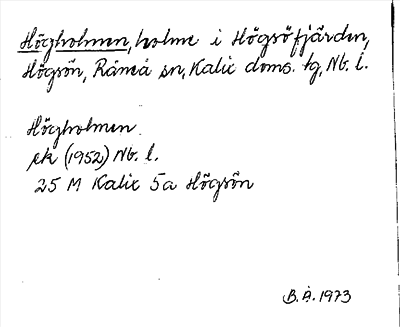 Högholmen, holme i Högsöfjärden,
Högsön, Råneå sn, Kalix doms. tg, Nb. l.
Högholmen
ek (1952) Nb. l.
25 M Kalix 5a Högsön
B. Å. 1973